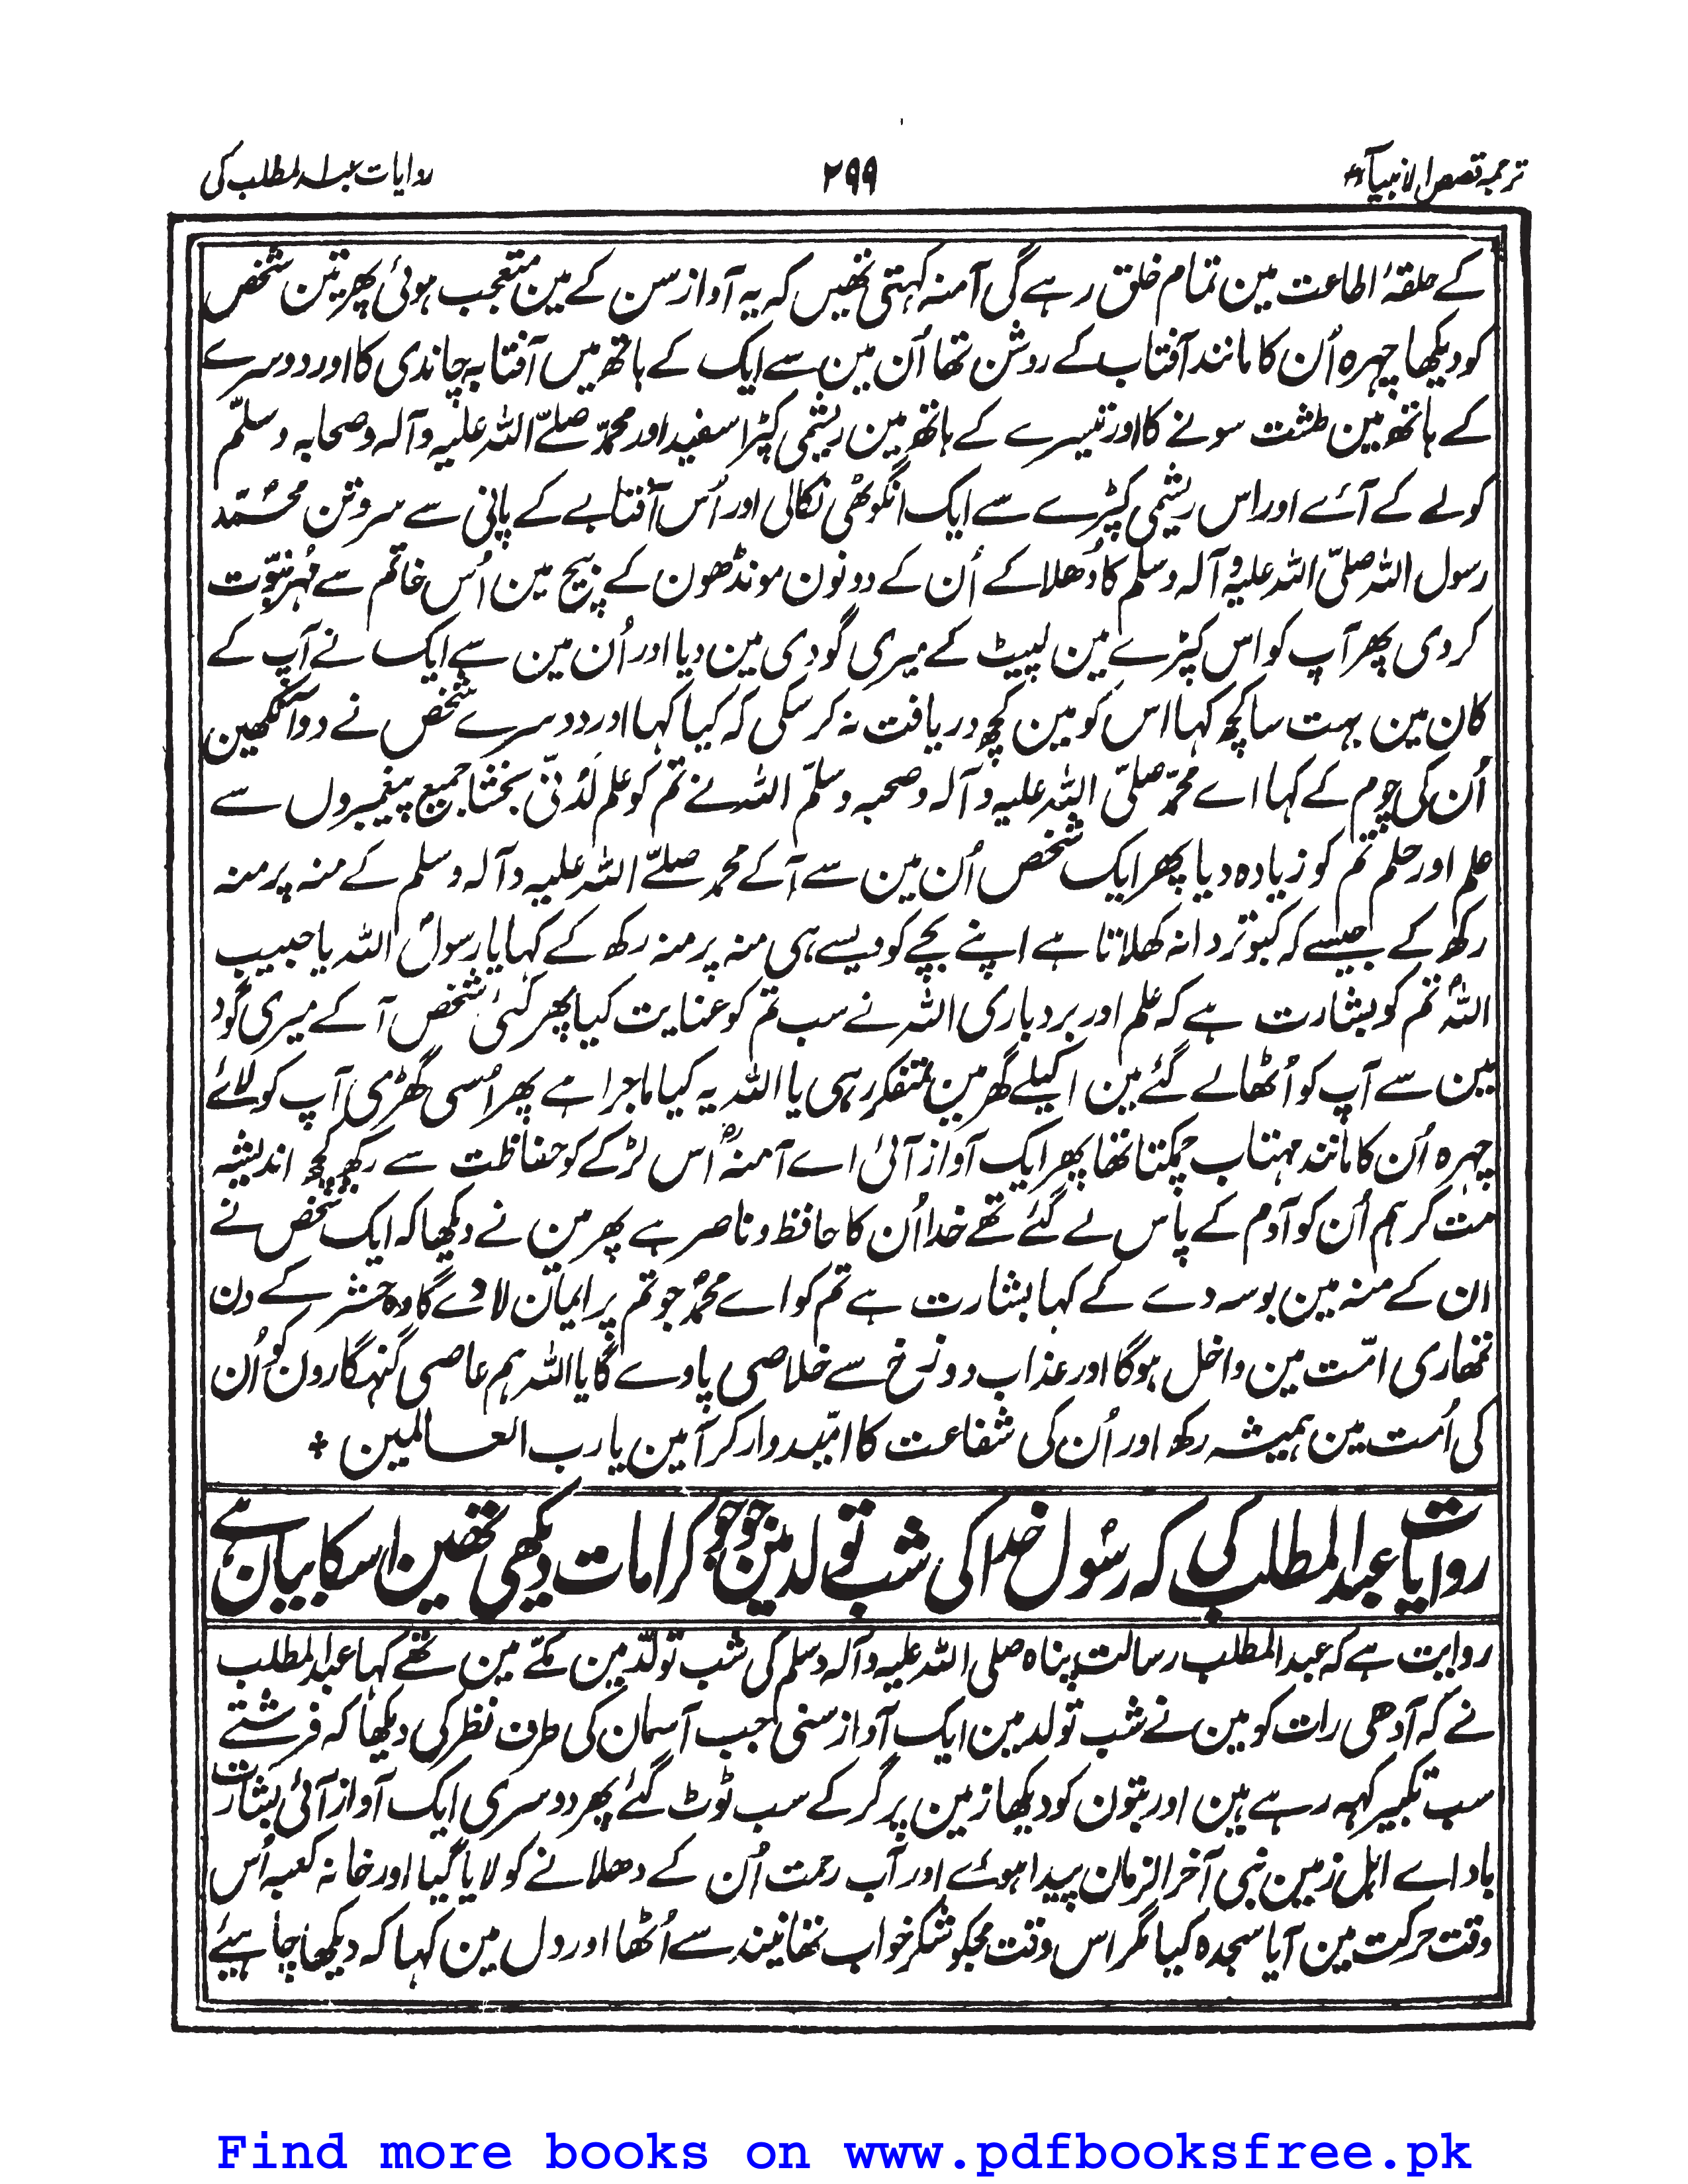 ترجمہ قصص الانبیآء
۲۹۹
روایات عبدالمطلب کی
کے حلقۂ اطاعت مین تمام خلق رہے گی آمنہ کہتی تھیں کہ یہ آواز سن کے مین متعجب ہوئی پھر تین شخص
کو دیکھا چہرہ اُن کا مانند آفتاب کے روشن تھا اُن مین سے ایک کے ہاتھ میں آفتابہ چاندی کا اور دوسرے
کے ہاتھ مین طشت سونے کا اور تیسرے کے ہاتھ مین ریشمی کپڑا سفید اور محمّد صلےّ اللہ علیہ وآلہ وصحابہ وسلّم
کو لے کے آئے اور اس ریشمی کپڑے سے ایک انگوٹھی نکالی اور اُس آفتابے کے پانی سے سر و تن محمّد
رسول اللہ صلیّ اللہ علیہ و آلہ وسلم کا دُھلا کے اُن کے دونون مونڈھون کے بیچ مین اُس خاتم سے مُہر نبوّت
کردی پھر آپ کو اس کپڑے مین لپیٹ کے میری گودی مین دیا اور اُن مین سے ایک نے آپ کے
کان مین بہت سا کچھ کہا اس کو مین کچھ دریافت نہ کرسکی کہ کیا کہا اور دوسرے شخص نے دو آنکھین
اُن کی چوم کے کہا اے محمّد صلیّ اللہ علیہ وآلہ وصحبہ وسلّم اللہ نے تم کو علم لَدُنّی بخشا جمیع پیغمبروں سے
علم اور حلم تم کو زیادہ دیا پھر ایک شخص اُن مین سے آکے محمد صلےّ اللہ علیہ وآلہ وسلم کے منہ پر منہ
رکھ کے جیسے کہ کبوتر دانہ کھلاتا ہے اپنے بچے کو ویسے ہی منہ پر منہ رکھ کے کہا یا رسولؐ اللہ یا حبیب
اللہؐ تم کو بشارت ہے کہ علم اور بردباری اللہ نے سب تم کو عنایت کیا پھر کئی شخص آکے میری گود
مین سے آپ کو اُٹھا لے گئے مین اکیلے گھر مین متفکر رہی یا اللہ یہ کیا ماجرا ہے پھر اُسی گھڑی آپ کو لائے
چہرہ اُن کا مانند مہتاب چمکتا تھا پھر ایک آواز آئی اے آمنہؓ اُس لڑکے کو حفاظت سے رکھو کچھ اندیشہ
مت کر ہم اُن کو آدم کے پاس لے گئے تھے خدا اُن کا حافظ و ناصر ہے پھر مین نے دیکھا کہ ایک شخص نے
ان کے منہ مین بوسہ دے کے کہا بشارت ہے تم کو اے محمدؐ جو تم پر ایمان لاوے گا وہ حشر کے دن
تمھاری امّت مین داخل ہوگا اور عذاب دوزخ سے خلاصی پاوے گا یا اللہ ہم عاصی گنہگارون کو اُن
کی اُمت مین ہمیشہ رکھ اور اُن کی شفاعت کا امّیدوار کر آمین یا رب العالمین +
روایات عبدالمطلب کی کہ رسولؐ خدا کی شب تولد مین جو جو کرامات دیکھی تھین اسکا بیان ہے
روایت ہے کہ عبدالمطلب رسالت پناہ صلی اللہ علیہ وآلہ وسلم کی شب تولّد مین مکّے مین تھے کہا عبدالمطلب
نے کہ آدھی رات کو مین نے شب تولد مین ایک آواز سنی جب آسمان کی طرف نظر کی دیکھا کہ فرشتے
سب تکبیر کہہ رہے ہین اور بتون کو دیکھا زمین پر گر کے سب ٹوٹ گئے پھر دوسری ایک آواز آئی بشارت
باد اے اہل زمین نبی آخرالزمان پیدا ہوئے اور آب رحمت اُن کے دھلانے کو لایا گیا اور خانہ کعبہ اُس
وقت حرکت مین آیا سجدہ کیا مگر اس وقت مجکو شکر خواب تھا نیند سے اُٹھا اور دل مین کہا کہ دیکھا چاہئے
Find more books on www.pdfbooksfree.pk